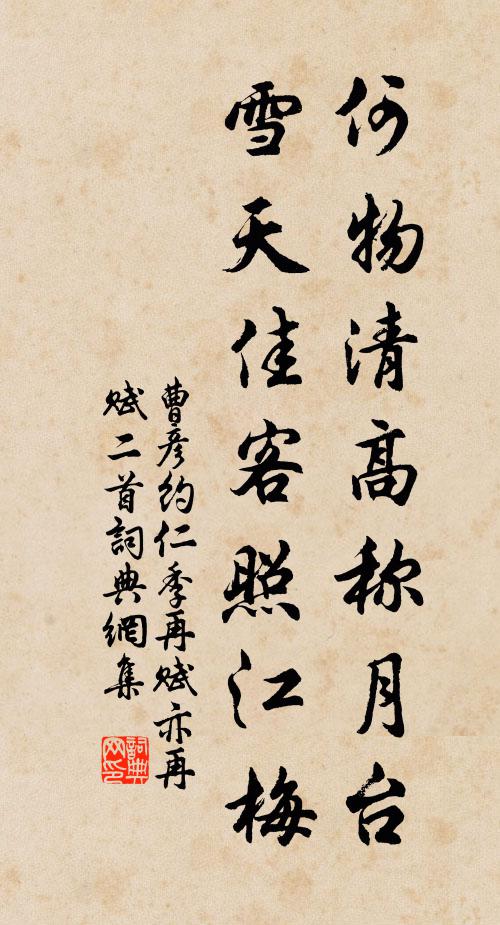 何物清高称月台
雪天佳客照江梅
曹彦约仁季再赋亦再
赋二首詞典網集
詞典网印